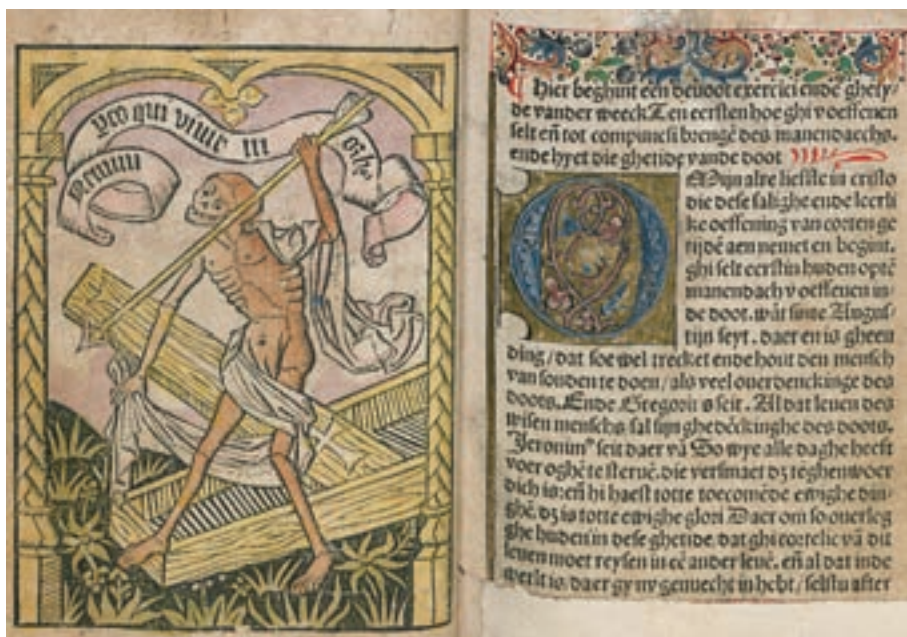 pro qui viuit in
Hier beghint een deuoot exercici ende ghety-
de vander weeck Ten eersten hoe ghi v oeffenen
selt eñ tot compunctiē brengē des manendaechs.
ende hyet die ghetide vande doot
Mijn alre liefste in cristo
die dese salighe ende leerli
ke oeffening van corten ge
tijdē aen nemet en begint.
ghi selt eerst in huden optē
manendach v oeffenen in
de doot. wāt sinte Augus-
tijn seyt. daer en is gheen
ding / dat soe wel trecket ende hout den mensch
van sonden te doen / als veel ouerdenckinge des
doots. Ende Gregorius seit. Al dat leuen des
wisen menschs sal sijn ghedēckinghe des doots.
Jeronimꝰ seit daer vā So wye alle daghe heeft
voer oghē te steruē. die versmaet dꝫ teghenwoer
dich is: eñ hi haest totte toecomēde ewighe din-
ghē. dꝫ is totte ewighe glori Daer om so ouerleg
ghe huden in dese ghetide. dat ghi cortelic vā dit
leuen moet reysen in eē ander leuē. eñ al dat inde
werlt is. daer gy nv genuecht in hebt / selstu after